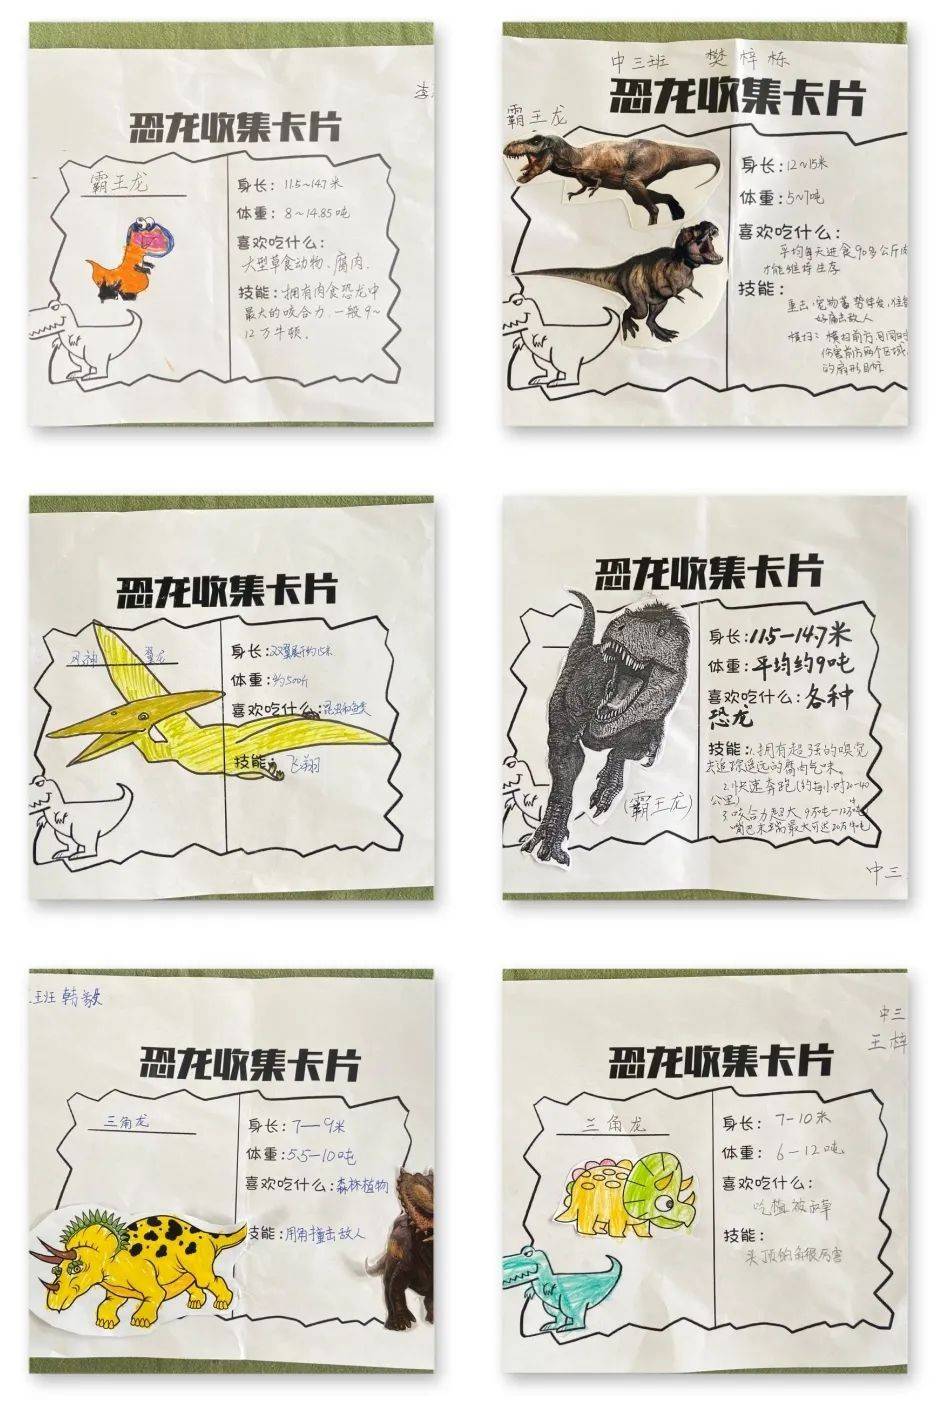 李
恐龙收集卡片
霸王龙
身长：11.5~14.7米
体重：8~14.85吨
喜欢吃什么：
大型草食动物、腐肉.
技能：拥有肉食恐龙中
最大的咬合力.一般9~
12万牛顿.
中三班 樊梓栋
恐龙收集卡片
霸王龙
身长：12~15米
体重：5~7吨
喜欢吃什么：
平均每天进食90多公斤肉
才能维持生存
技能：
重击:宠物蓄势
好痛击敌人
横扫：横扫前方
伤害前方两个区域
的扇形目标
恐龙收集卡片
风神翼龙
身长：双翼展开约15米
体重：约500斤
喜欢吃什么：昆虫和鱼类
技能：飞翔
恐龙收集卡片
(霸王龙)
身长：11.5—14.7米
体重：平均约9吨
喜欢吃什么：各种
恐龙
技能：1.拥有超强的嗅觉
去追踪遥远的腐肉气味。
2.快速奔跑(约每小时20-40
公里)
3.咬合力超大 9万吨—12万吨
嘴巴末端最大可达20万牛吨
中三
班 韩毅
恐龙收集卡片
三角龙
身长：7—9米
体重：5.5—10吨
喜欢吃什么：森林植物
技能：用角撞击敌人
中三
王梓
恐龙收集卡片
三角龙
身长：7-10米
体重：6-12吨
喜欢吃什么：
吃植被和草
技能：
头顶的角很厉害